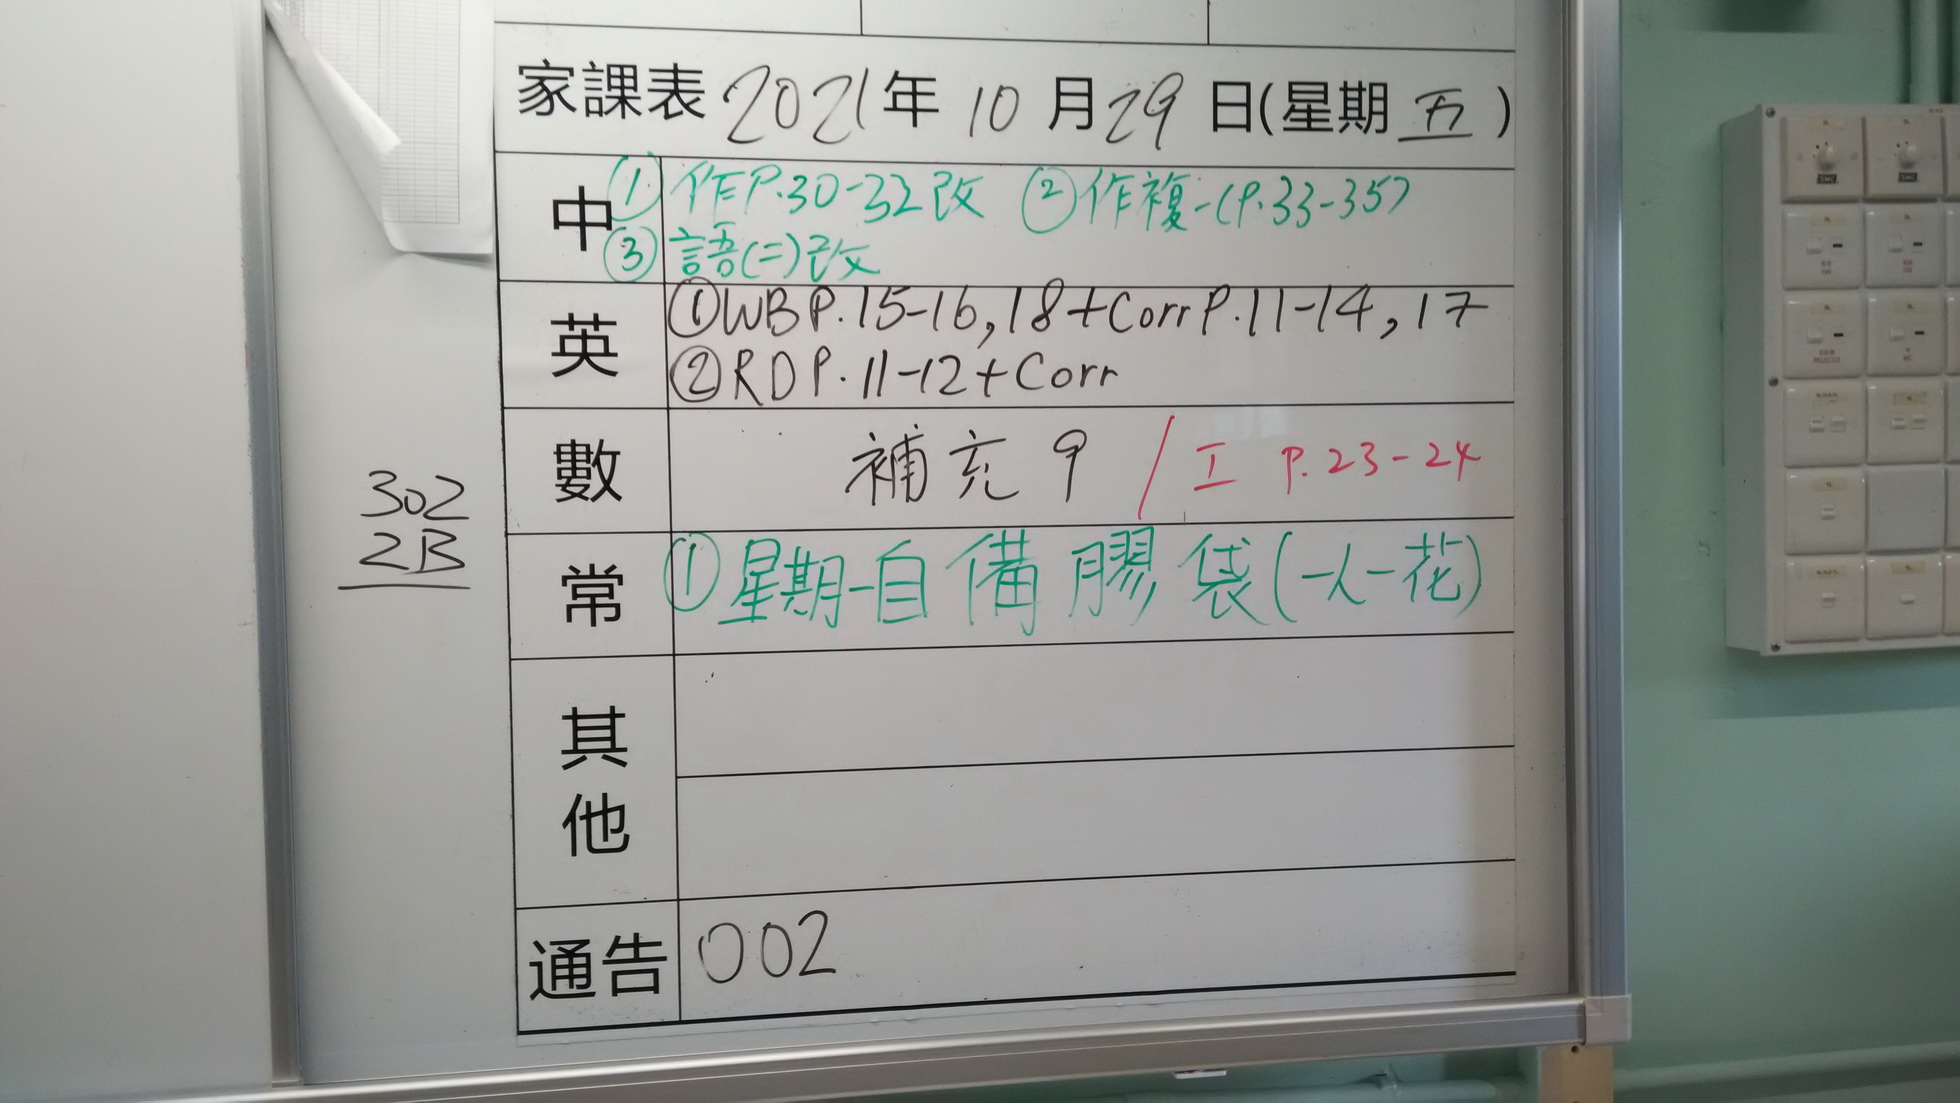 家課表 2021年 10 月 29 日(星期 五 )
中 ① 作P.30-32改 ② 作複-(P.33-35)
③ 語(二)改
英 ①WB P.15-16,18+Corr P.11-14,17
②RD P.11-12+Corr
數 補充9 / 工 P.23-24
302
2B
常 ①星期一自備膠袋(一人一花)
其他
通告 002